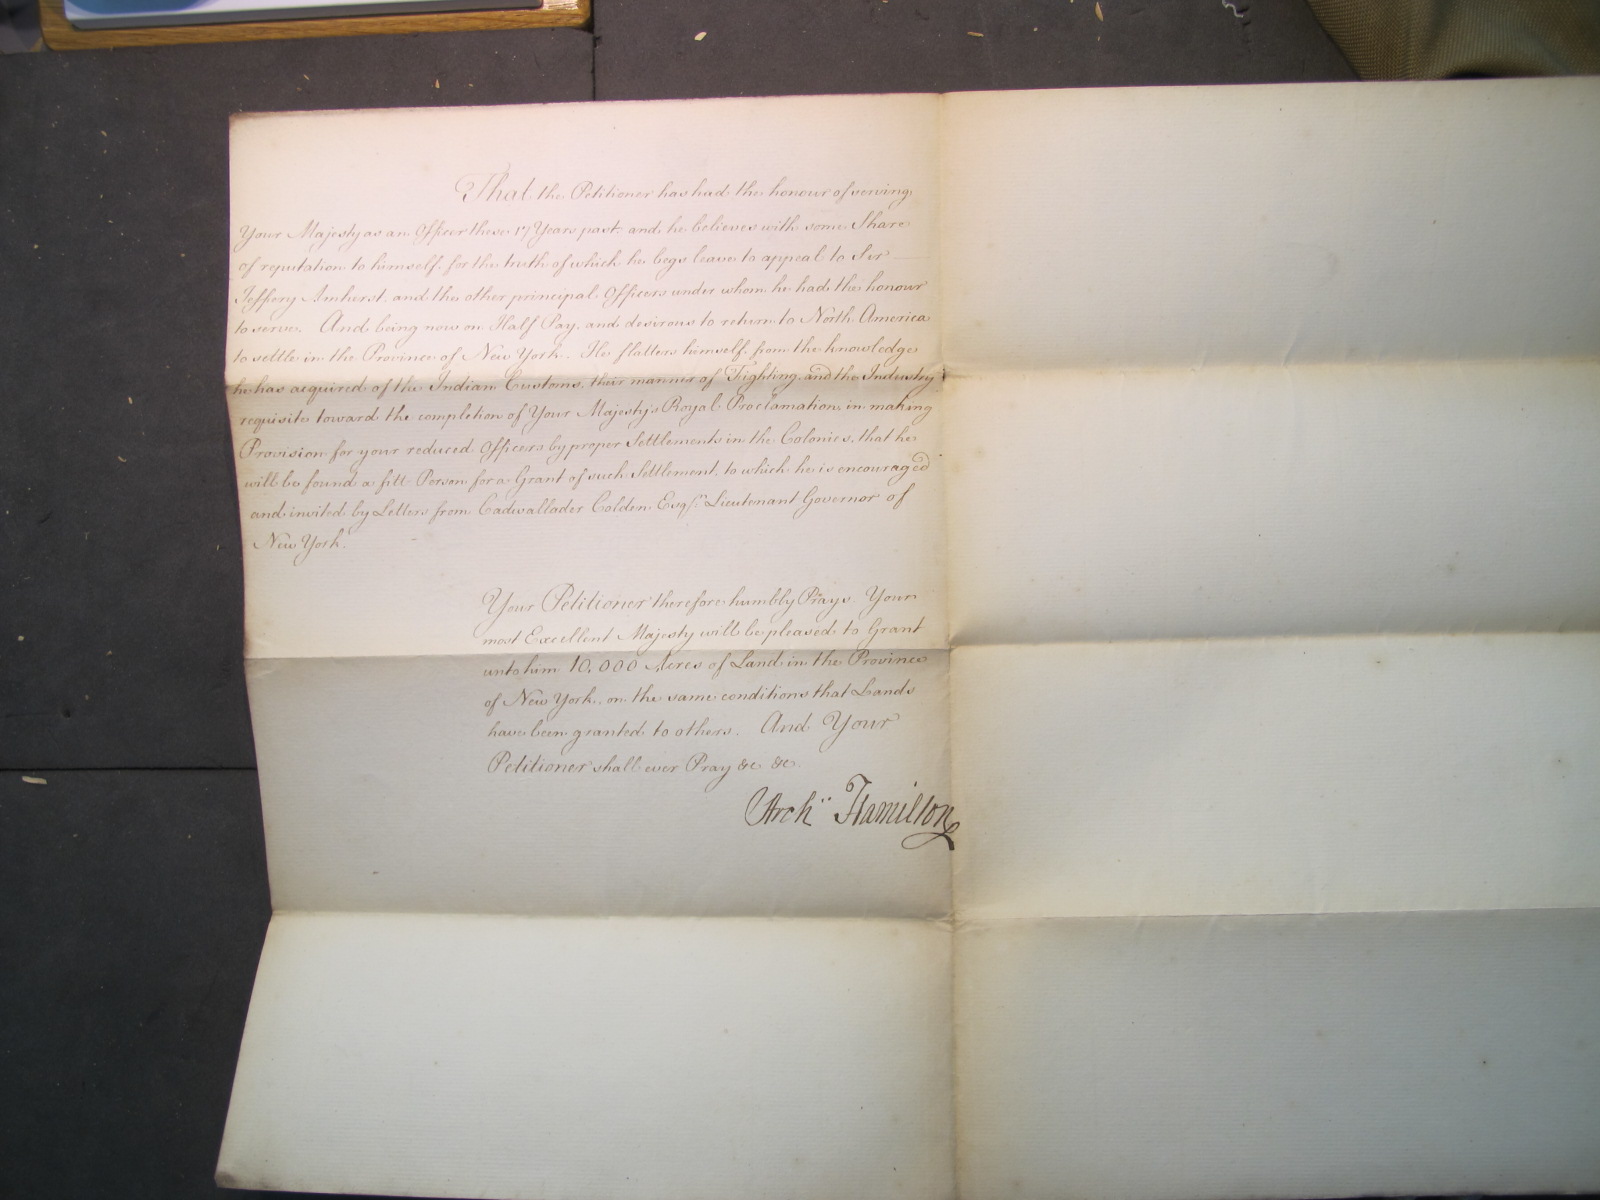 That the Petitioner has had the honour of serving
Your Majesty as an Officer these 17 Years past, and he believes with some Share
of reputation to himself, for the truth of which he begs leave to appeal to Sir
Jeffery Amherst, and the other principal Officers under whom he had the honour
to serve. And being now on Half Pay, and desirous to return to North America
to settle in the Province of New York. He flatters himself, from the knowledge
he has acquired of the Indian Customs, their manner of Fighting, and the Industry
requisite toward the completion of Your Majesty's Royal Proclamation in making
Provision for your reduced Officers by proper Settlements in the Colonies, that he
will be found a fitt Person for a Grant of such Settlement, to which he is encouraged
and invited by Letters from Cadwallader Colden Esqr. Lieutenant Governor of
New York.
Your Petitioner therefore humbly Prays Your
most Excellent Majesty will be pleased to Grant
unto him 10,000 Acres of Land in the Province
of New York, on the same conditions that Lands
have been granted to others. And Your
Petitioner shall ever Pray &c &c.
Archd. Hamilton